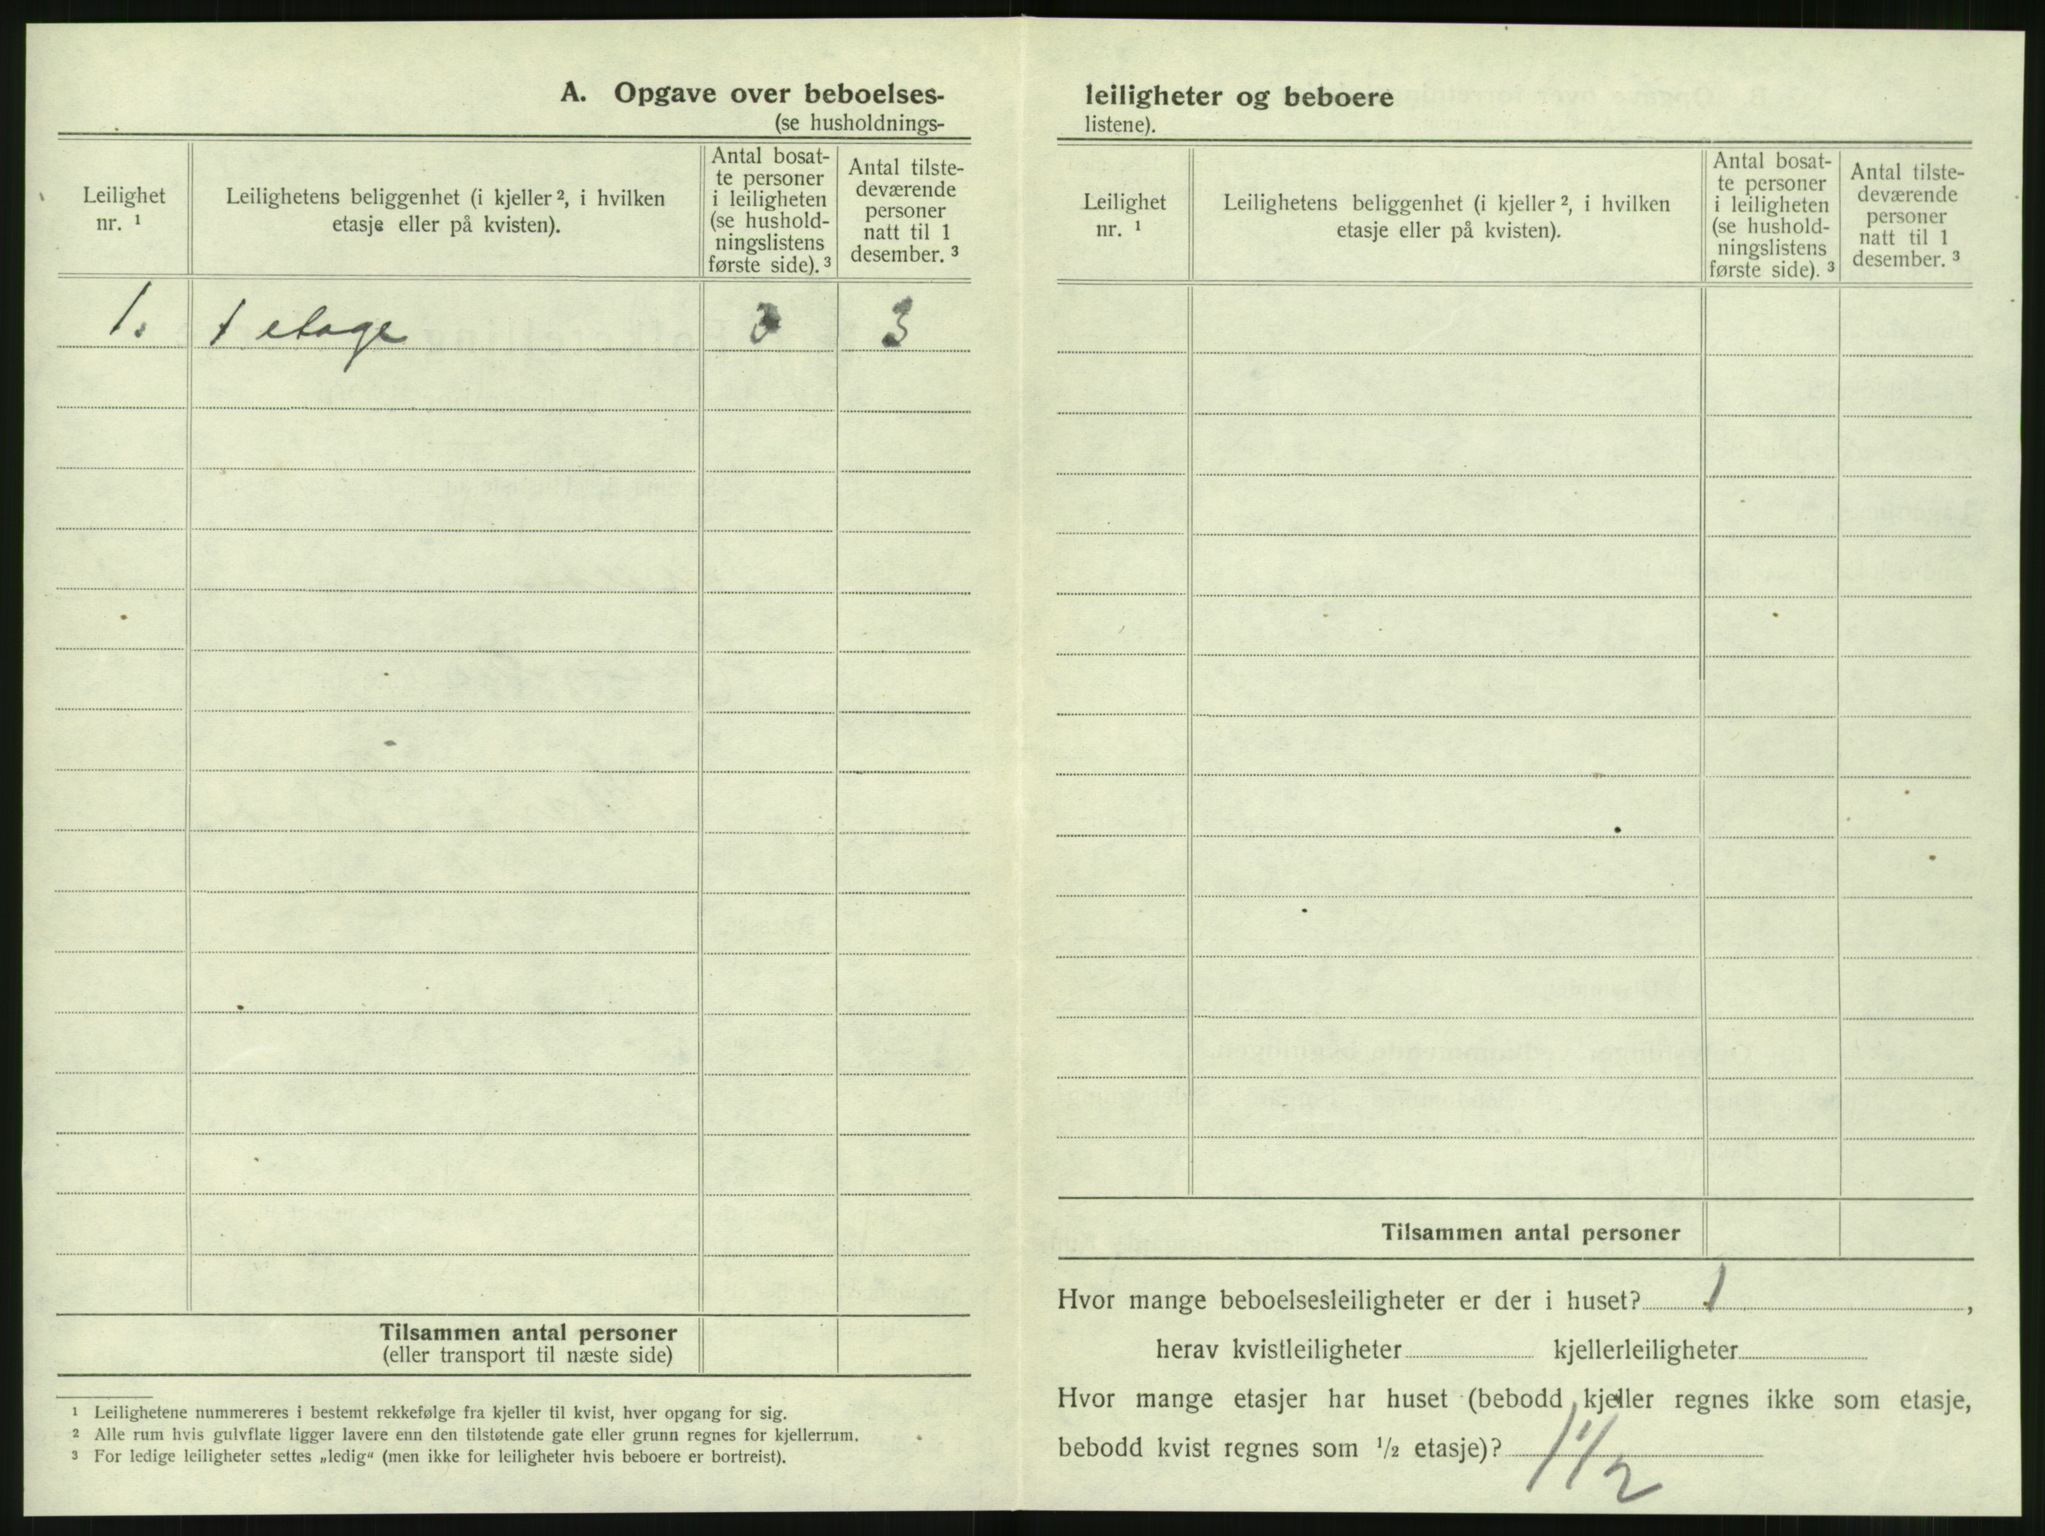 A. Opgave over beboelses-
(se husholdnings-
Leilighet
nr. ¹
Leilighetens beliggenhet (i kjeller ², i hvilken
etasje eller på kvisten).
Antal bosat-
te personer
i leiligheten
(se hushold-
ningslistens
første side). ³
Antal tilste-
deværende
personer
natt til 1
desember. ³
1. 1 etage 3 3
Tilsammen antal personer
(eller transport til næste side)
¹ Leilighetene nummereres i bestemt rekkefølge fra kjeller til kvist, hver opgang for sig.
² Alle rum hvis gulvflate ligger lavere enn den tilstøtende gate eller grunn regnes for kjellerrum.
³ For ledige leiligheter settes „ledig“ (men ikke for leiligheter hvis beboere er bortreist).
leiligheter og beboere
listene).
Leilighet
nr. ¹
Leilighetens beliggenhet (i kjeller ², i hvilken
etasje eller på kvisten).
Antal bosat-
te personer
i leiligheten
(se hushold-
ningslistens
første side). ³
Antal tilste-
deværende
personer
natt til 1
desember. ³
Tilsammen antal personer
Hvor mange beboelsesleiligheter er der i huset? 1,
herav kvistleiligheter kjellerleiligheter
Hvor mange etasjer har huset (bebodd kjeller regnes ikke som etasje,
bebodd kvist regnes som ½ etasje)? 1½